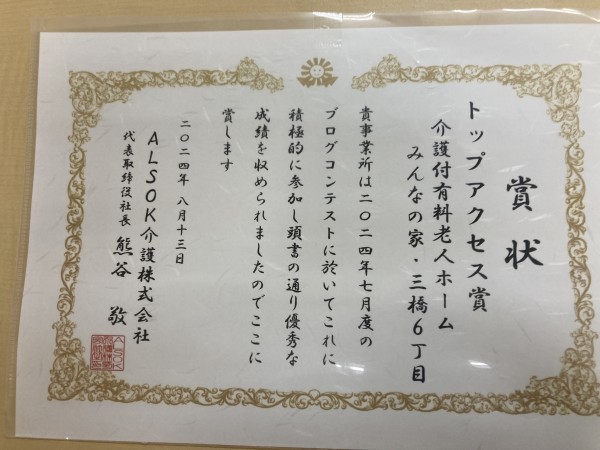 賞状
トップアクセス賞
介護付有料老人ホーム
みんなの家・三橋6丁目
貴事業所は二〇二四年七月度の
ブログコンテストに於いてこれに
積極的に参加し頭書の通り優秀な
成績を収められましたのでここに
賞します
二〇二四年 八月十三日
ALSOK介護株式会社
代表取締役社長 熊谷 敬